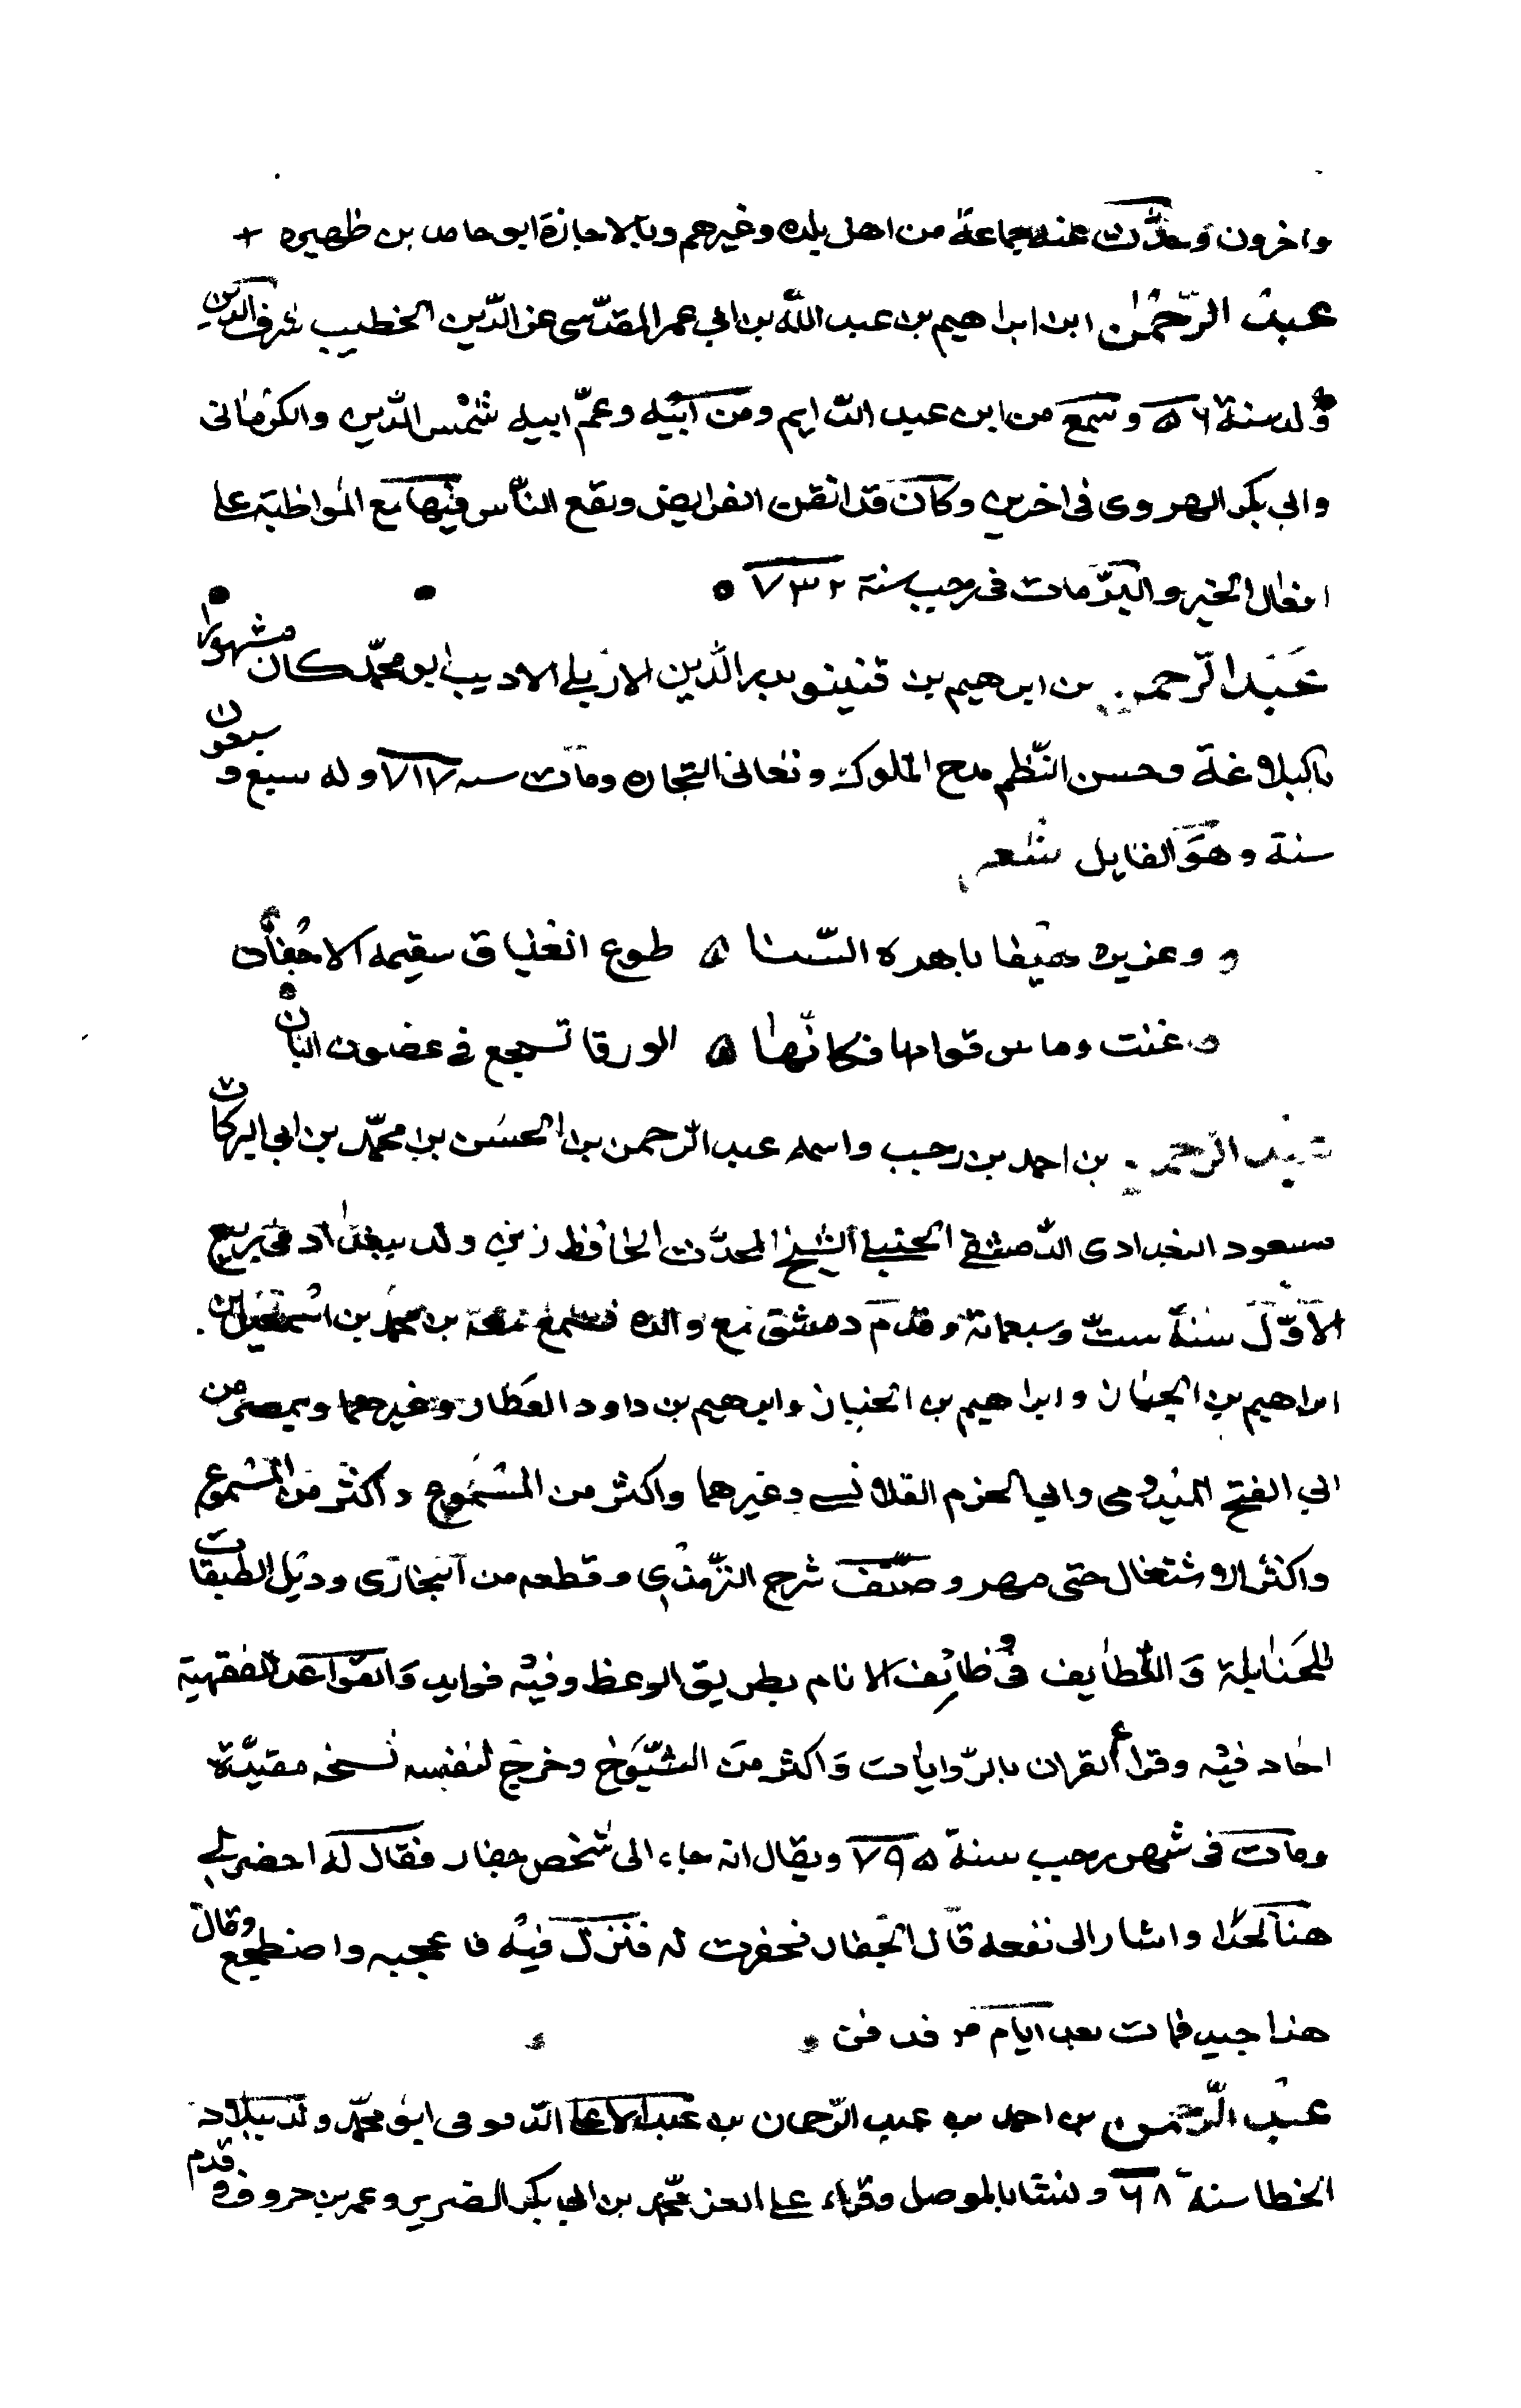 واخرون وحدّث عنه جماعة من اهل بلده وغيرهم وبالاجازة ابو حامد بن ظهيره
عبد الرّحمٰن ابن ابراهيم بن عبد الله بن ابي عمر المقدّسى عز الدّين الخطيب شرف الدين
وُلد سنة ٥٦ وسمع من ابن عبد الدّايم ومن ابيه وعمّ ابيه شمْس الدّين والكرْمانى
وابي بكر الهروى فى اخرين وكان قد اتقن الفرايض ونفع الناس فيها مع المواظبة على
افعال الخير والبرّ مات فى رجب سنة ٧٣٢
عَبْد الرّحمن بن ابرهيم بن قنينو بدر الدّين الاربلي الاديب ابو محمّد كان مشهورا
بالبلاغة وحسن النّظم مدح الملوك وتعانى التجاره ومات سنه ٧١٧ وله سبع و سبعون
سنة وهوَ القايل شعر
وعزيزه هيفا باهرة السّنا طوع العناق سقيمه الاجفان
غنت وماس قوامها فكانّها الورقا تسجع فى غصون البان
عبد الرحمن بن احمد بن رجب واسمه عبد الرّحمن بن الحسَن بن محمّد بن ابي البركات
مسعود البغدادى الدّمشقي الحنبلي الشيخ المحدّث الحافظ زين ولد ببغداد فى ربيع
الاوّل سنة ستّ وسبعمائة وقدم دمشق مع والده فسمع معه بن محمد بن اسمعيل بن
ابراهيم بن الخباز وابراهيم بن الخباز وابرهيم بن داود العطار وغيرهما وبمصر من
ابي الفتح الميدومى وابي الحزم القلانسي وغيرهما واكثر من المسْمُوع واكثر من المسموع
واكثر الاشتغال حتى مهر وصنّف شرح الترّمذي وقطعه من البخارى وذيل الطبقات
للحَنابلة وَاللّطايف فى وُظائِف الانام بطريق الوعظ وفيْه فوايد وَالقواعد الفقهية
اجاد فيْه وقرأ القران بالرّوايات وَاكثر من الشّيوخ وخرّج لنفسه نسخه مقيدّة
ومات فى شهر رجب سنة ٧٩٥ ويقال انه جاء الى شخص حفار فقال له احضر لي
هنا لحدًا واشار الى نقعه قال الحفار فحفرت له فنزل فيْه فاعجبه واضطجع وقال
هذا جيد فمات بعد ايام فدفن
عبد الرّحمن بن احمد بن عبد الرّحمان بن عبد الاعلى الدّموقى ابو محمّد ولد ببلاد
الخطا سنة ٦٨ ونشا بالموصل وقراء على العز محمّد بن ابي بكر الضرير وعمر بن خروف وقدم